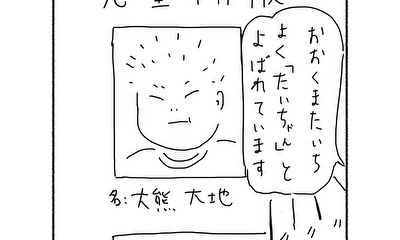 おおくまたいち
よく「たいちゃん」と
よばれています
名:大熊 大地